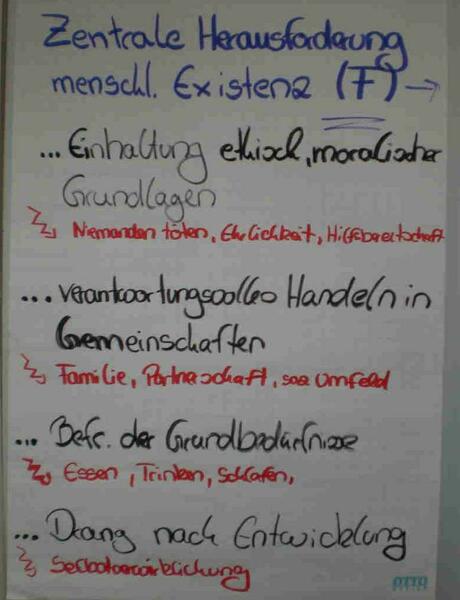 Zentrale Herausforderung
menschl. Existenz (F) →
... Einhaltung ethisch, moralischer
Grundlagen
Niemanden töten, Ehrlichkeit, Hilfsbereitschaft
... verantwortungsvolles Handeln in
Gemeinschaften
Familie, Partnerschaft, soz Umfeld
... Befr. der Grundbedürfnisse
Essen, Trinken, Schlafen,
... Drang nach Entwicklung
Selbstverwirklichung
OTTO